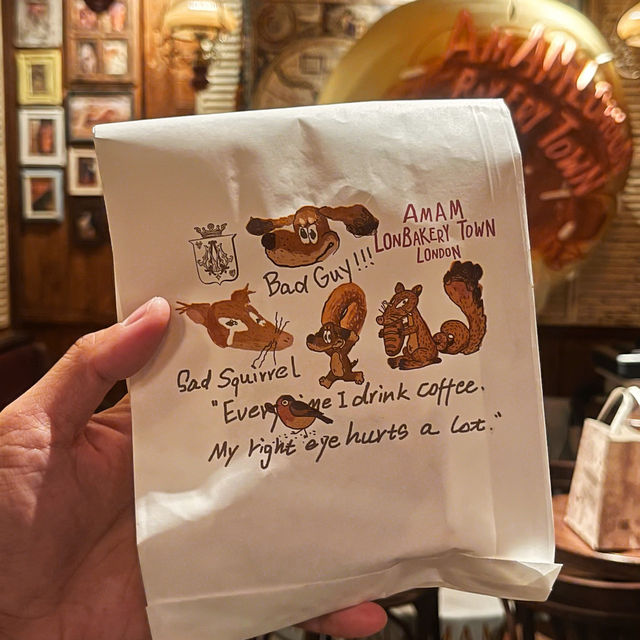 AMAM
LONBAKERY TOWN
LONDON
Bad Guy!!!
Sad Squirrel
"Every me I drink coffee.
My right eye hurts a lot."
AMAM
BAKERY TOWN